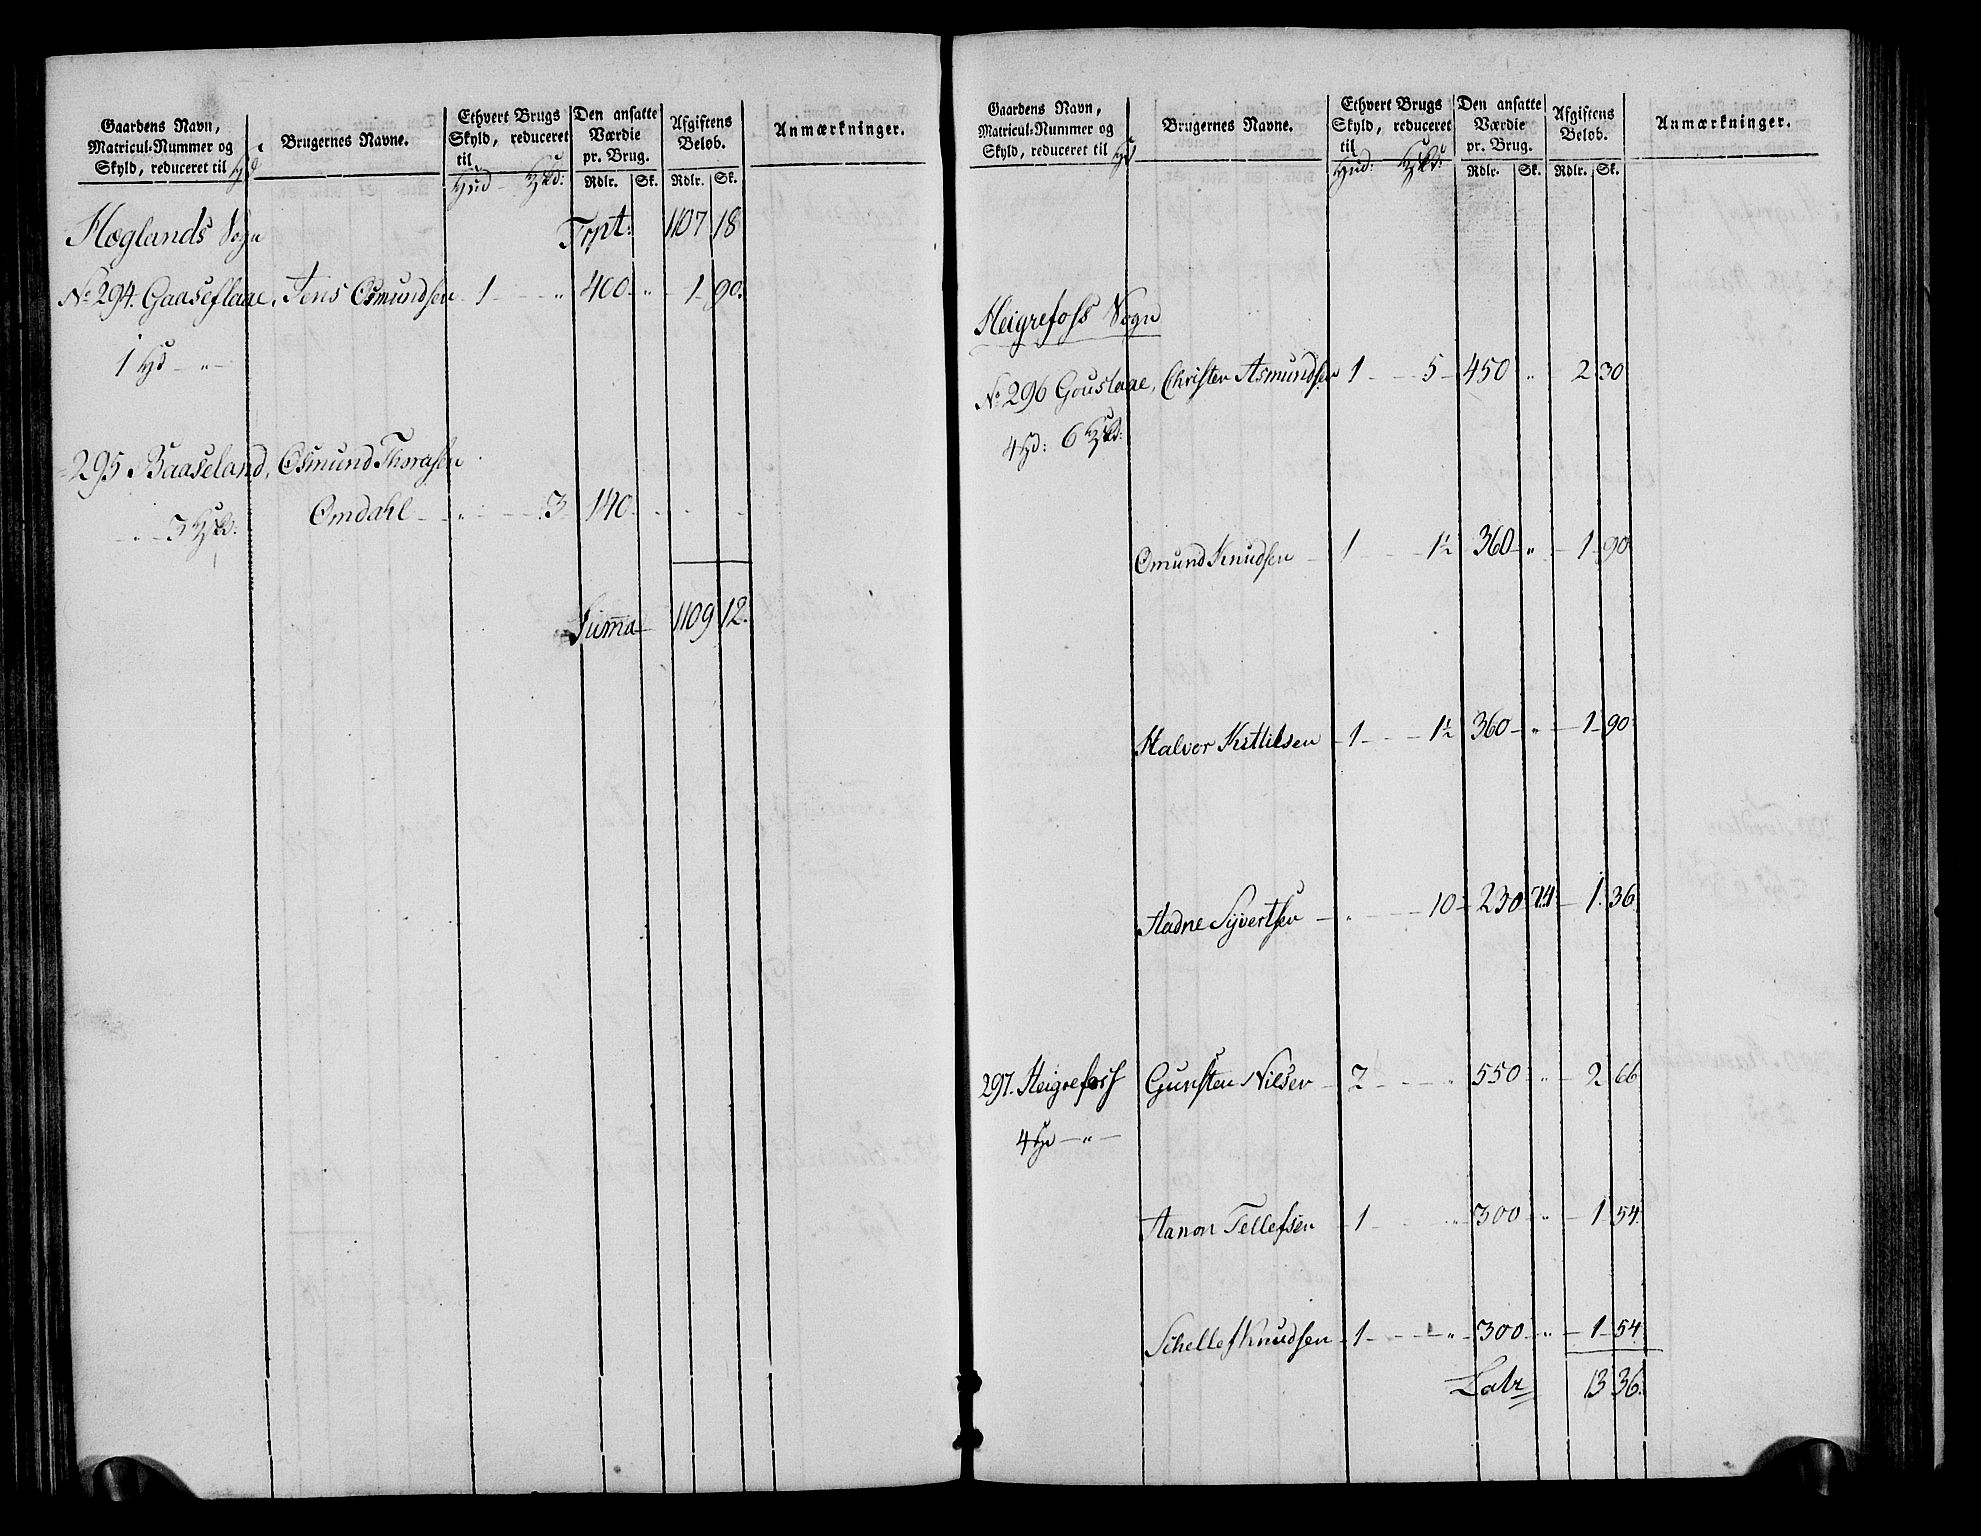 Gaardens Navn, Matricul-Nummer og Skyld, reduceret til Hd
Brugernes Navne.
Ethvert Brugs Skyld, reduceret til Hud - Hskd:
Den ansatte Værdie pr. Brug. Rdlr. Sk.
Afgiftens Beløb. Rdlr. Sk.
Anmærkninger.
Høglands Sogn Trpt: 1107 18
No 294. Gaaseflaae, Jens Osmundsen 1 - " 400 - " - 1 - 90.
1 Hd - " -
- 295 Baaseland, Osmund Thorasen
Omdahl - " - 3 140 -
- " - 3 Hskd:
Summa 1109 12.
Gaardens Navn, Matricul-Nummer og Skyld, reduceret til Hd
Brugernes Navne.
Ethvert Brugs Skyld, reduceret til Hud: Hskd:
Den ansatte Værdie pr. Brug. Rdlr. Sk.
Afgiftens Beløb. Rdlr. Sk.
Anmærkninger.
Heigrefoss Sogn
No 296 Gouslaae, Christen Asmundsen 1 - - 5 - 450 " 2 30
4 Hd: 6 Hskd:
Omund Knudsen - 1 - - 1½ 360 - " - 1 - 90
Halvor Kittilsen - 1 - - 1½ 360 - " - 1 - 90
Aadne Syvertsen - " - - 10 - 230 24 - 1. 36
297. Heigrefoss Gunsten Nilsen - 2 - - " 550 - " - 2 66
4 Hd - " -
Aanon Tellefsen - 1 - - " 300 - " - 1 54.
Schellef Knudsen - 1 - - " - 300 - " - 1 - 54
Latr 13 36.